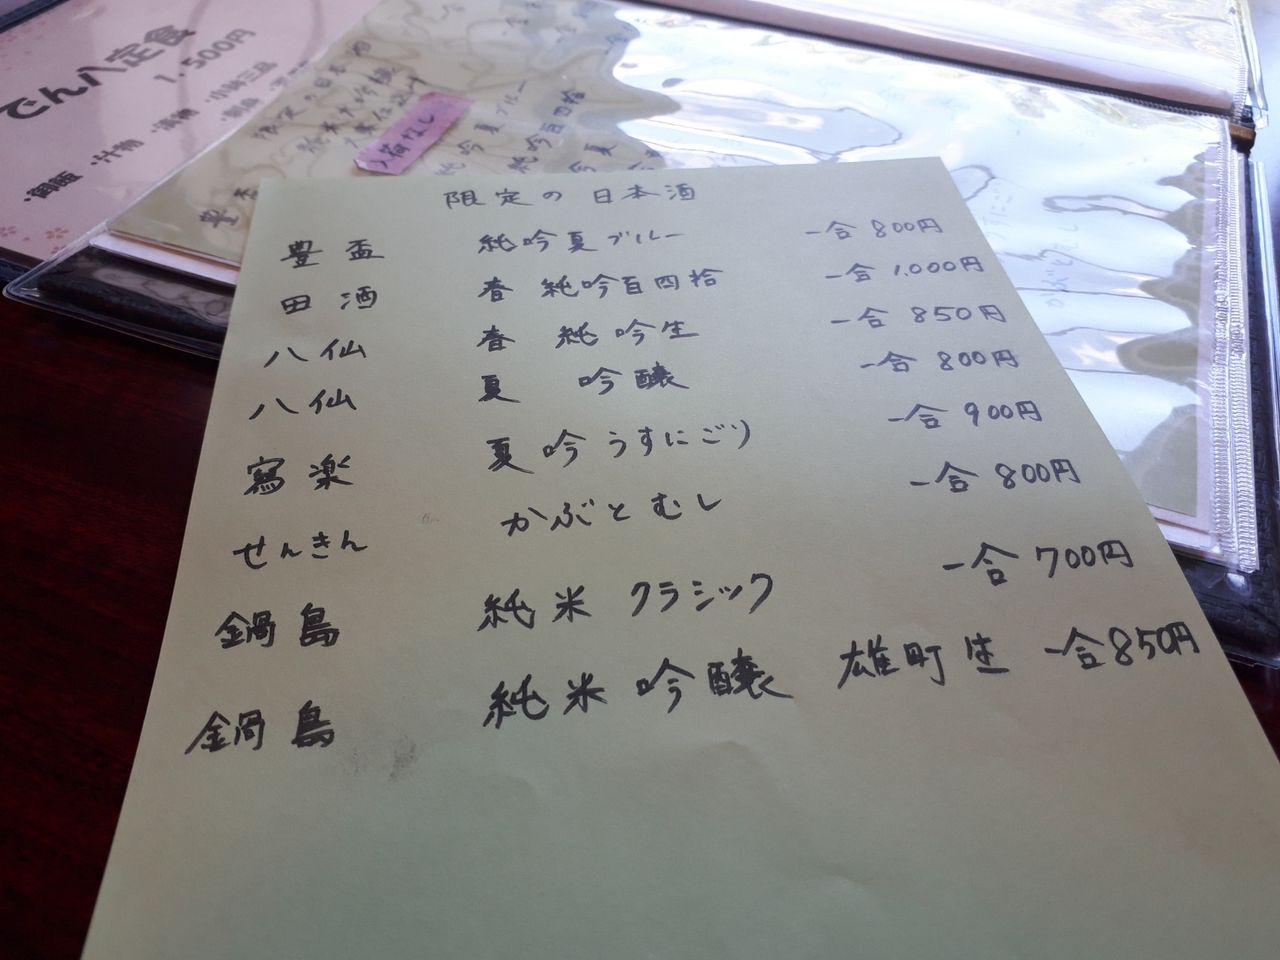 でん八定食
1,500円
・御飯 ・汁物 ・漬物 ・小鉢三品
入荷なし
限定の日本酒
豊盃 純吟夏ブルー 一合 800円
田酒 春 純吟百四拾 一合 1,000円
八仙 春 純吟生 一合 850円
八仙 夏 吟醸 一合 800円
寫楽 夏吟うすにごり 一合 900円
せんきん かぶとむし 一合 800円
鍋島 純米 クラシック 一合 700円
鍋島 純米吟醸 雄町生 一合850円